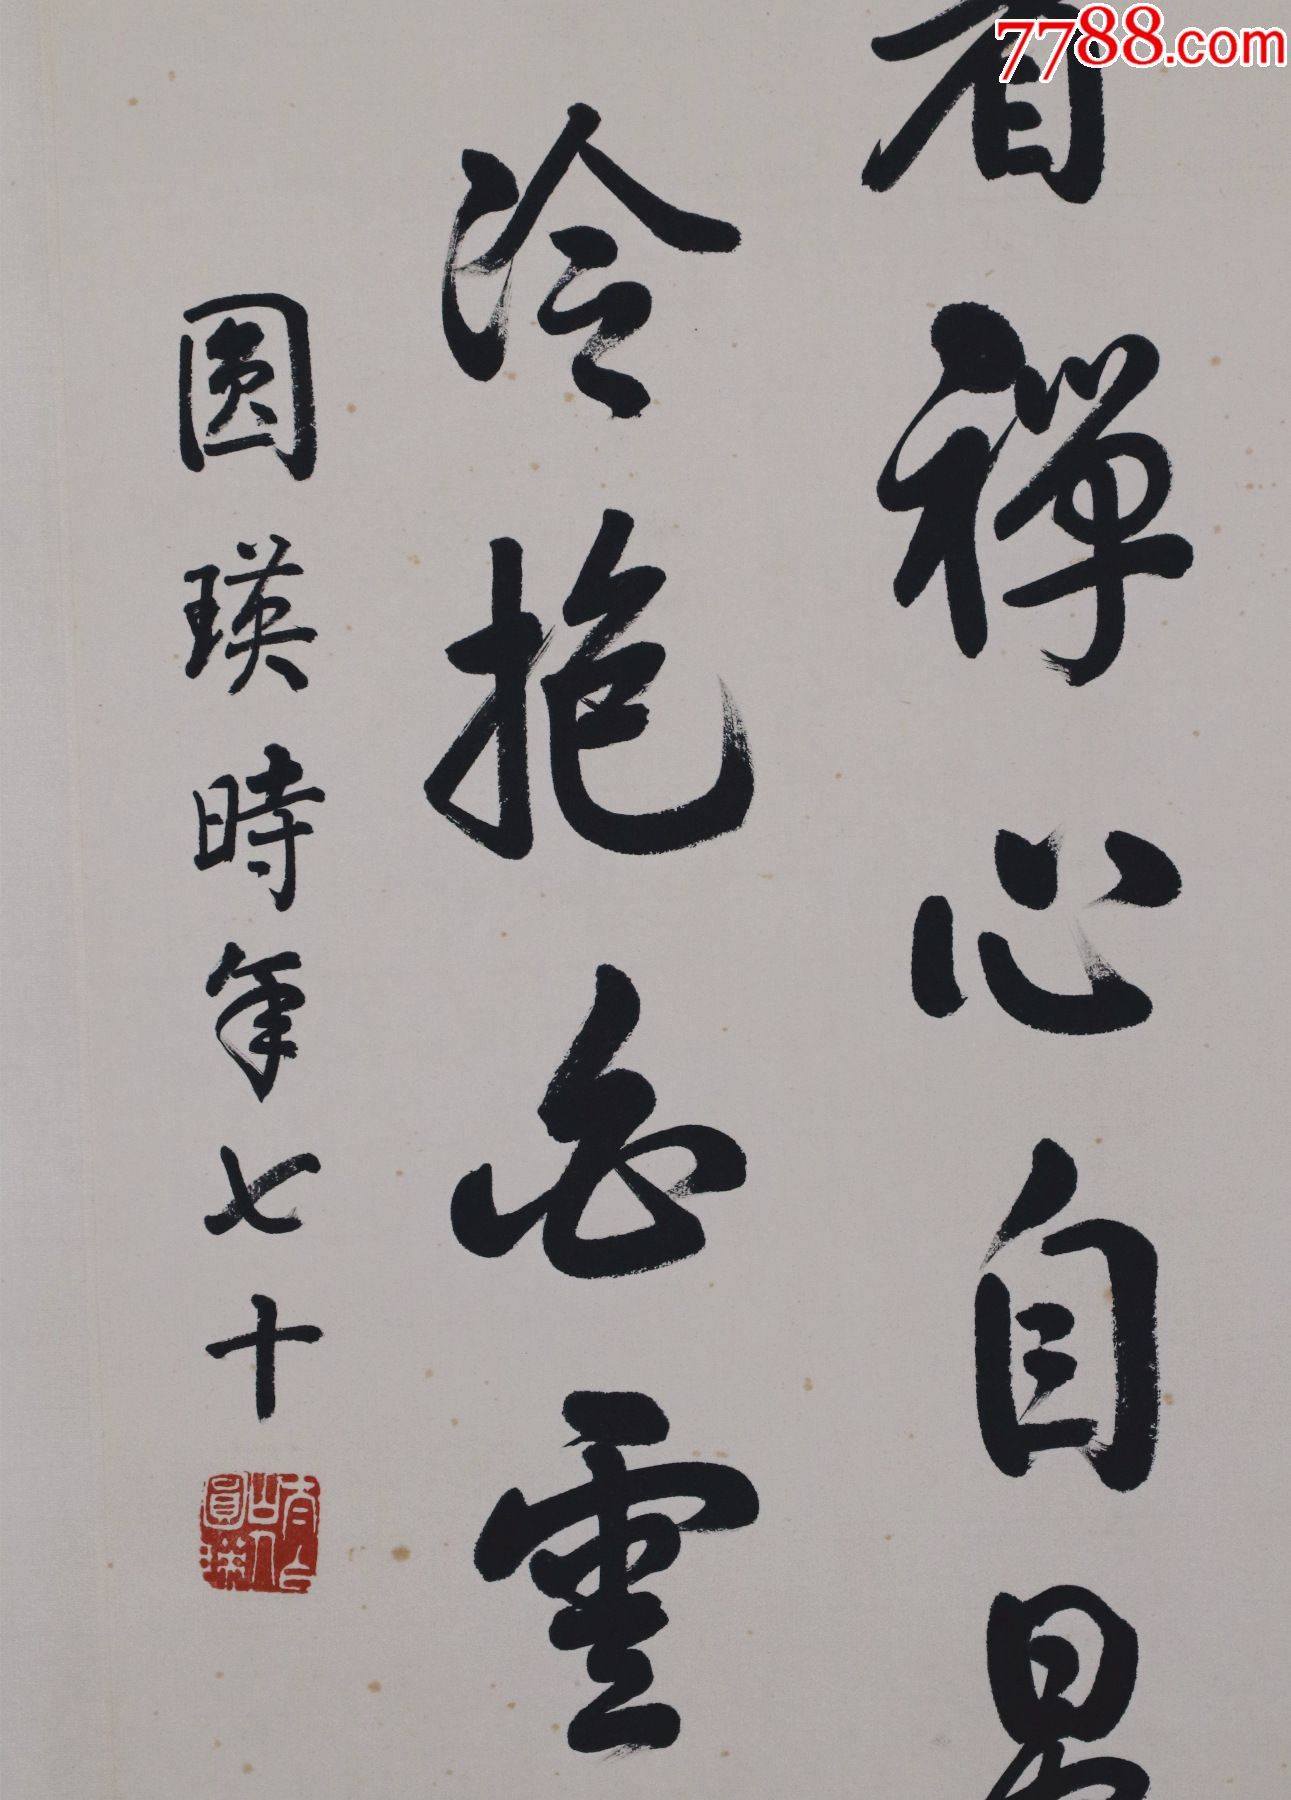 禪心自
冷抱白雲
圓瑛時年七十
圓瑛
7788.com